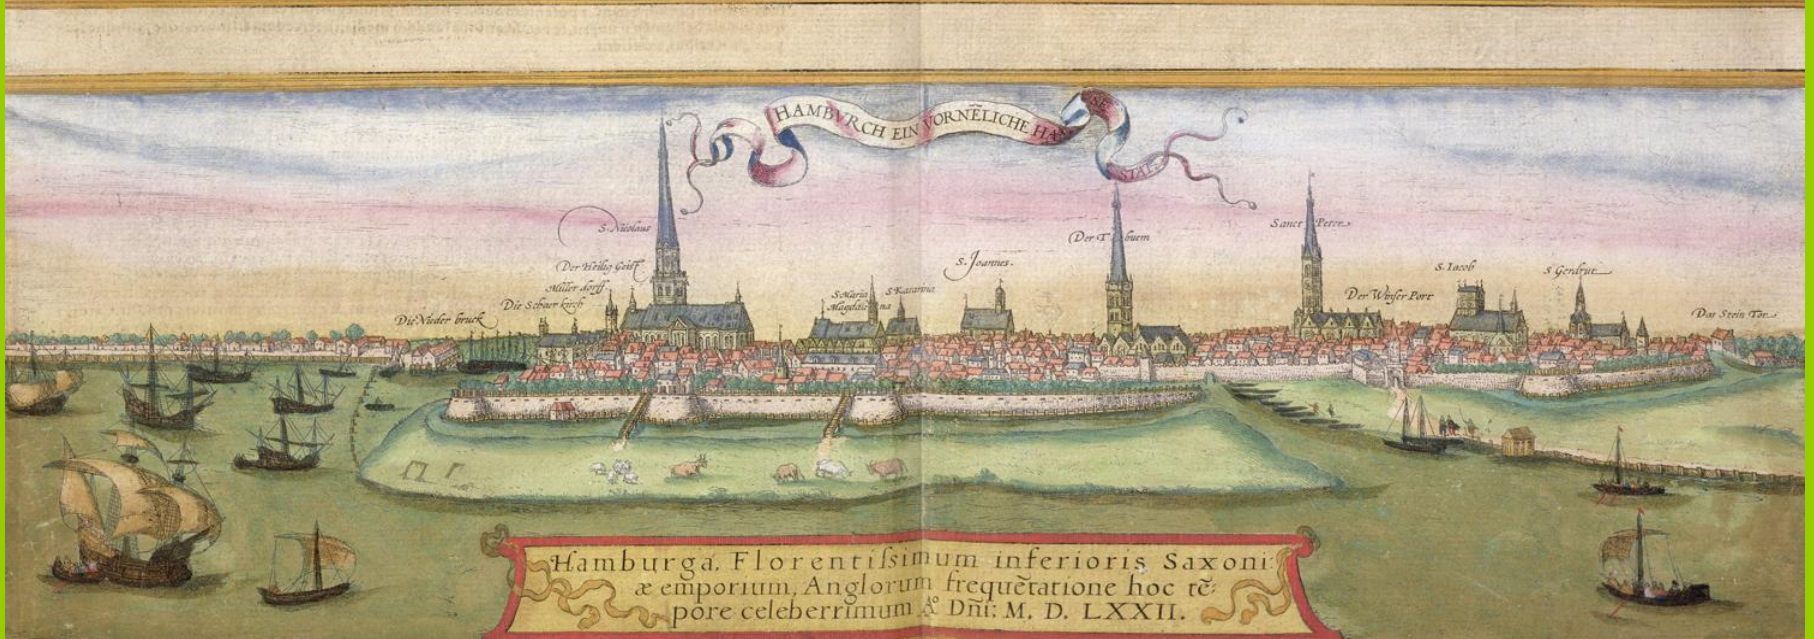 HAMBVRCH EIN VORNE̅LICHE HANSE
STAT
S. Nicolaus
Der Heilig Geist
Miller dorff.
Die Schaer kirch
Die Nieder bruck
S. Maria
Magdale na
S Katarina
S. Joannes.
Der T buem
Sanct Peter
Der Winser Port
S. Iacob
S Gerdrut
Das Stein Tor
Hamburga, Florentiſsimum inferioris Saxoni:
æ emporium, Anglorum freque̅tatione hoc te̅:
pore celeberrimum Aº Dn̅i: M. D. LXXII.